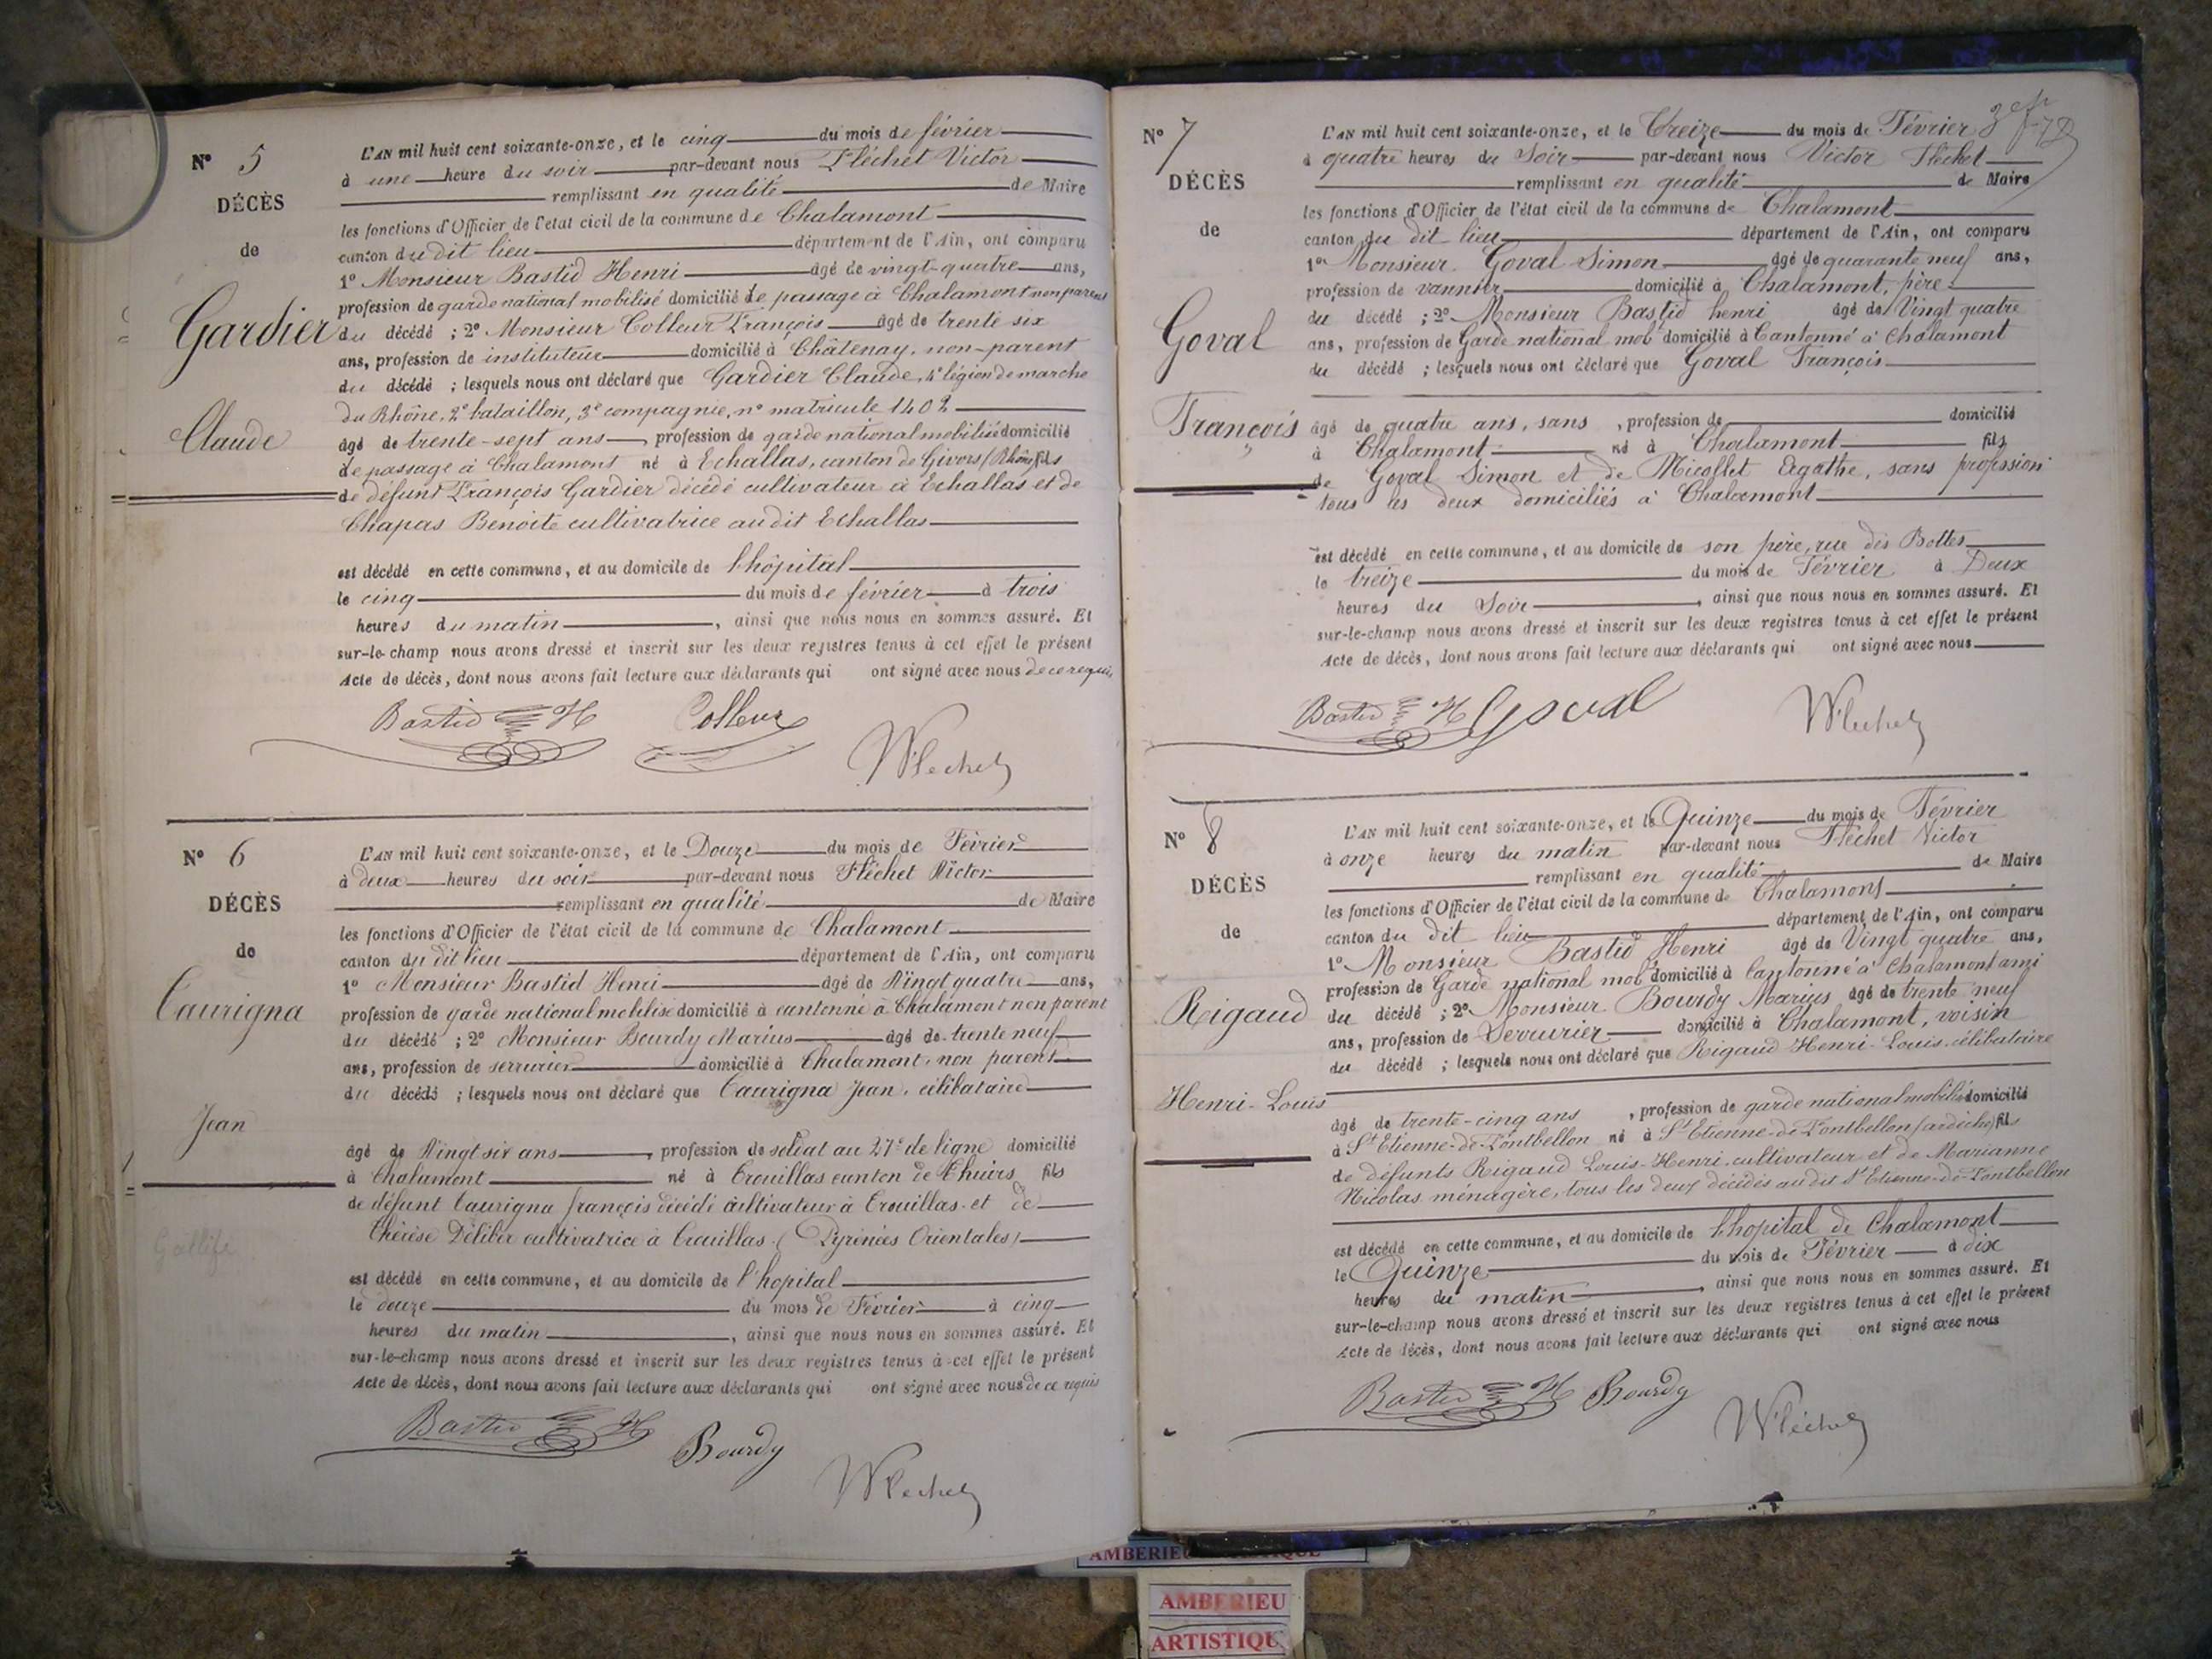 N° 5
DÉCÈS
de
Gardier
Claude
L'AN mil huit cent soixante-onze, et le cinq du mois de février
à une heure du soir par-devant nous Fléchet Victor
remplissant en qualité de Maire
les fonctions d'Officier de l'état civil de la commune de Chalamont
canton du dit lieu département de l'Ain, ont comparu
1° Monsieur Bastid Henri âgé de vingt-quatre ans,
profession de garde national mobilisé domicilié de passage à Chalamont non parent
du décédé ; 2° Monsieur Colleur François âgé de trente six
ans, profession de instituteur domicilié à Châtenay, non-parent
du décédé ; lesquels nous ont déclaré que Gardier Claude, 4e légion de marche
du Rhône, 2e bataillon, 3e compagnie, n° matricule 1402
âgé de trente-sept ans, profession de garde national mobilisé domicilié
de passage à Chalamont né à Echallas, canton de Givors (Rhône) fils
de défunt François Gardier décédé cultivateur à Echallas et de
Chapas Benoite cultivatrice audit Echallas
est décédé en cette commune, et au domicile de l'hôpital
le cinq du mois de février à trois
heures du matin, ainsi que nous nous en sommes assuré. Et
sur-le-champ nous avons dressé et inscrit sur les deux registres tenus à cet effet le présent
Acte de décès, dont nous avons fait lecture aux déclarants qui ont signé avec nous de ce requis
Bastid H Colleur
VFlechet
N° 6
DÉCÈS
de
Caurigna
Jean
L'AN mil huit cent soixante-onze, et le Douze du mois de Février
à deux heures du soir par-devant nous Fléchet Victor
remplissant en qualité de Maire
les fonctions d'Officier de l'état civil de la commune de Chalamont
canton du dit lieu département de l'Ain, ont comparu
1° Monsieur Bastid Henri âgé de Vingt quatre ans,
profession de garde national mobilisé domicilié à cantonné à Chalamont non parent
du décédé ; 2° Monsieur Bourdy Marius âgé de trente neuf
ans, profession de serrurier domicilié à Chalamont, non parent
du décédé ; lesquels nous ont déclaré que Caurigna Jean, célibataire
âgé de Vingt six ans, profession de soldat au 27e de ligne domicilié
à Chalamont né à Trouillas canton de Thuirs fils
de défunt Caurigna françois décédé cultivateur à Trouillas et de
Thérèse Déliber cultivatrice à Trouillas (Pyrénées Orientales)
est décédé en cette commune, et au domicile de l'hopital
le douze du mois de Février à cinq
heures du matin, ainsi que nous nous en sommes assuré. Et
sur-le-champ nous avons dressé et inscrit sur les deux registres tenus à cet effet le présent
Acte de décès, dont nous avons fait lecture aux déclarants qui ont signé avec nous de ce requis
Bastid H Bourdy
VFlechet
N° 7
DÉCÈS
de
Goval
François
L'AN mil huit cent soixante-onze, et le Treize du mois de Février
à quatre heures du Soir par-devant nous Victor Fléchet
remplissant en qualité de Maire
les fonctions d'Officier de l'état civil de la commune de Chalamont
canton du dit lieu département de l'Ain, ont comparu
1° Monsieur Goval Simon âgé de quarante neuf ans,
profession de vannier domicilié à Chalamont, père
du décédé ; 2° Monsieur Bastid henri âgé de Vingt quatre
ans, profession de Garde national mob domicilié à Cantonné à Chalamont
du décédé ; lesquels nous ont déclaré que Goval François
âgé de quatre ans, sans, profession de domicilié
à Chalamont né à Chalamont fils
de Goval Simon et de Micollet Agathe, sans profession
tous les deux domiciliés à Chalamont
est décédé en cette commune, et au domicile de son père, rue des Bottes
le treize du mois de Février à Deux
heures du Soir, ainsi que nous nous en sommes assuré. Et
sur-le-champ nous avons dressé et inscrit sur les deux registres tenus à cet effet le présent
Acte de décès, dont nous avons fait lecture aux déclarants qui ont signé avec nous
Bastid H Goval
VFlechet
N° 8
DÉCÈS
de
Rigaud
Henri-Louis
L'AN mil huit cent soixante-onze, et le Quinze du mois de Février
à onze heures du matin par-devant nous Fléchet Victor
remplissant en qualité de Maire
les fonctions d'Officier de l'état civil de la commune de Chalamont
canton du dit lieu département de l'Ain, ont comparu
1° Monsieur Bastid Henri âgé de Vingt quatre ans,
profession de Garde national mob domicilié à Cantonné à Chalamont ami
du décédé ; 2° Monsieur Bourdy Marius âgé de trente neuf
ans, profession de Serrurier domicilié à Chalamont, voisin
du décédé ; lesquels nous ont déclaré que Rigaud Henri-Louis, célibataire
âgé de trente-cinq ans, profession de garde national mobilisé domicilié
à St Etienne-de-Fontbellon né à St Etienne-de-Fontbellon (ardèche) fils
de défunts Rigaud Louis-Henri, cultivateur et de Marianne
Nicolas ménagère, tous les deux décédés audit St Etienne-de-Fontbellon
est décédé en cette commune, et au domicile de l'hopital de Chalamont
le Quinze du mois de Février à dix
heures du matin, ainsi que nous nous en sommes assuré. Et
sur-le-champ nous avons dressé et inscrit sur les deux registres tenus à cet effet le présent
Acte de décès, dont nous avons fait lecture aux déclarants qui ont signé avec nous
Bastid H Bourdy
VFléchet
AMBERIEU
ARTISTIQU